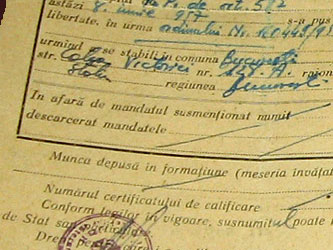 astăzi 8 iunie 957 s-a pus
libertate, în urma ordinului Nr.
urmînd a se stabili în comuna București
str. Calea Victoriei nr. raion
regiunea București
In afară de mandatul susmenționat numit
descarcerat mandatele
Munca depusă în formațiune (meseria învățat
Numărul certificatului de calificare
Conform legilor în vigoare, susnumitul poate
de Stat sau particulare